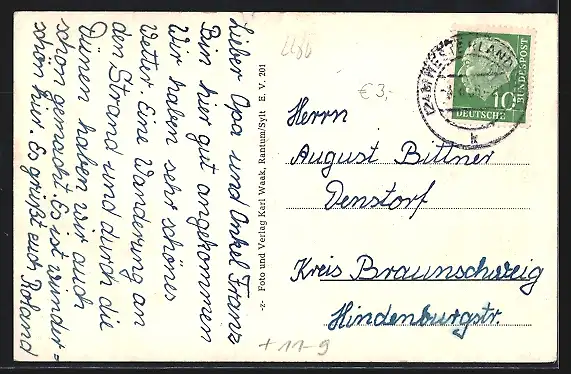 Lieber Opa und Onkel Franz
Bin hier gut angekommen
Wir haben sehr schönes
Wetter. Eine Wanderung an
den Strand und durch die
Dünen haben wir auch
schön gemacht. Es ist wunder=
schön hier. Es grüßt euch Roland
-z- Foto und Verlag Karl Waak, Rantum/Sylt E. V. 201
€ 3,-
WESTERLAND
k
10
DEUTSCHE
BUNDESPOST
Herrn
August Bittner
Denstorf
Kreis Braunschweig
Hindenburgstr.
+ 11-9